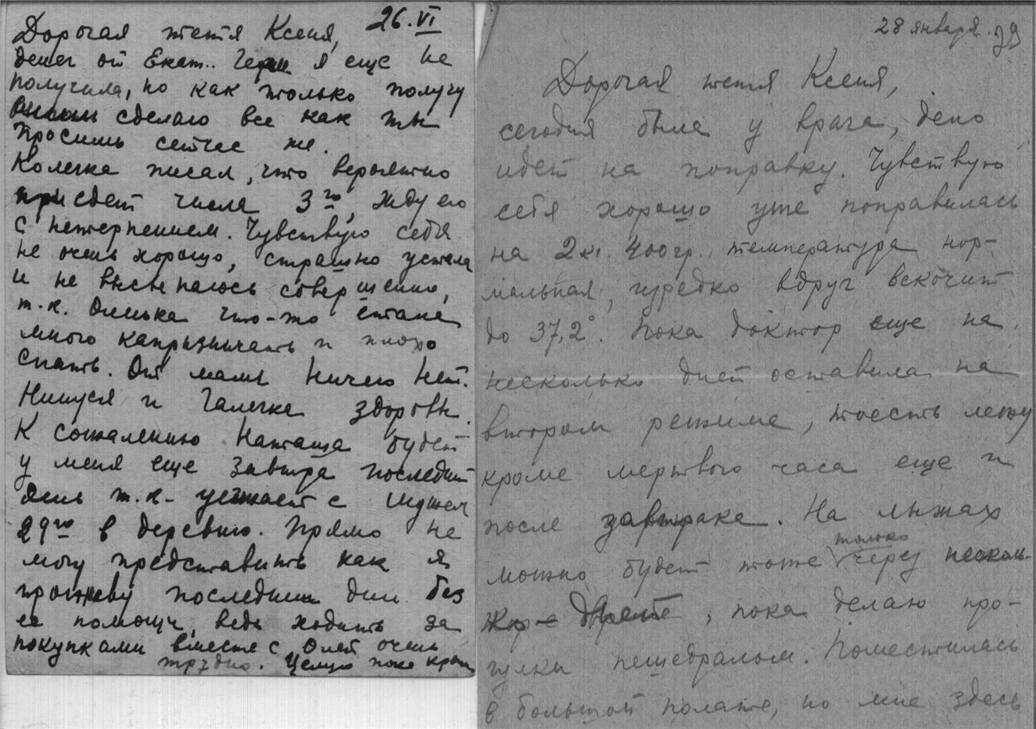 26.VI
Дорогая тетя Ксеня,
денег от Екат. я еще не
получила, но как только получу
сделаю все как ты
просишь сейчас же.
Колечка писал, что вероятно
приедет числа 3го, жду его
с нетерпением. Чувствую себя
не очень хорошо, страшно устала
и не высыпаюсь совершенно,
т.к. Оленька что-то стала
много капризничать и плохо
спать. От мамы ничего нет.
Нинуся и Галечка здоровы.
К сожалению Наташа будет
у меня еще завтра последний
день т.к. уезжает с мужем
29го в деревню. Прямо не
могу представить как я
проживу последние дни без
ее помощи, ведь ходить за
покупками вместе с Олей очень
трудно. Целую пока крепко
28 января 39
Дорогая тетя Ксеня,
сегодня была у врача, дело
идет на поправку. Чувствую
себя хорошо уже поправилась
на 2 кг. 400 гр. температура нор-
мальная, изредко вдруг вскочит
до 37,2°. Пока доктор еще на
несколько дней оставила на
втором режиме, тоесть лежу
кроме мертвого часа еще и
после завтрака. На лыжах
можно будет тоже только через несколь-
ко дней, пока делаю про-
гулки пешедралом. Поместилась
в большой палате, но мне здесь